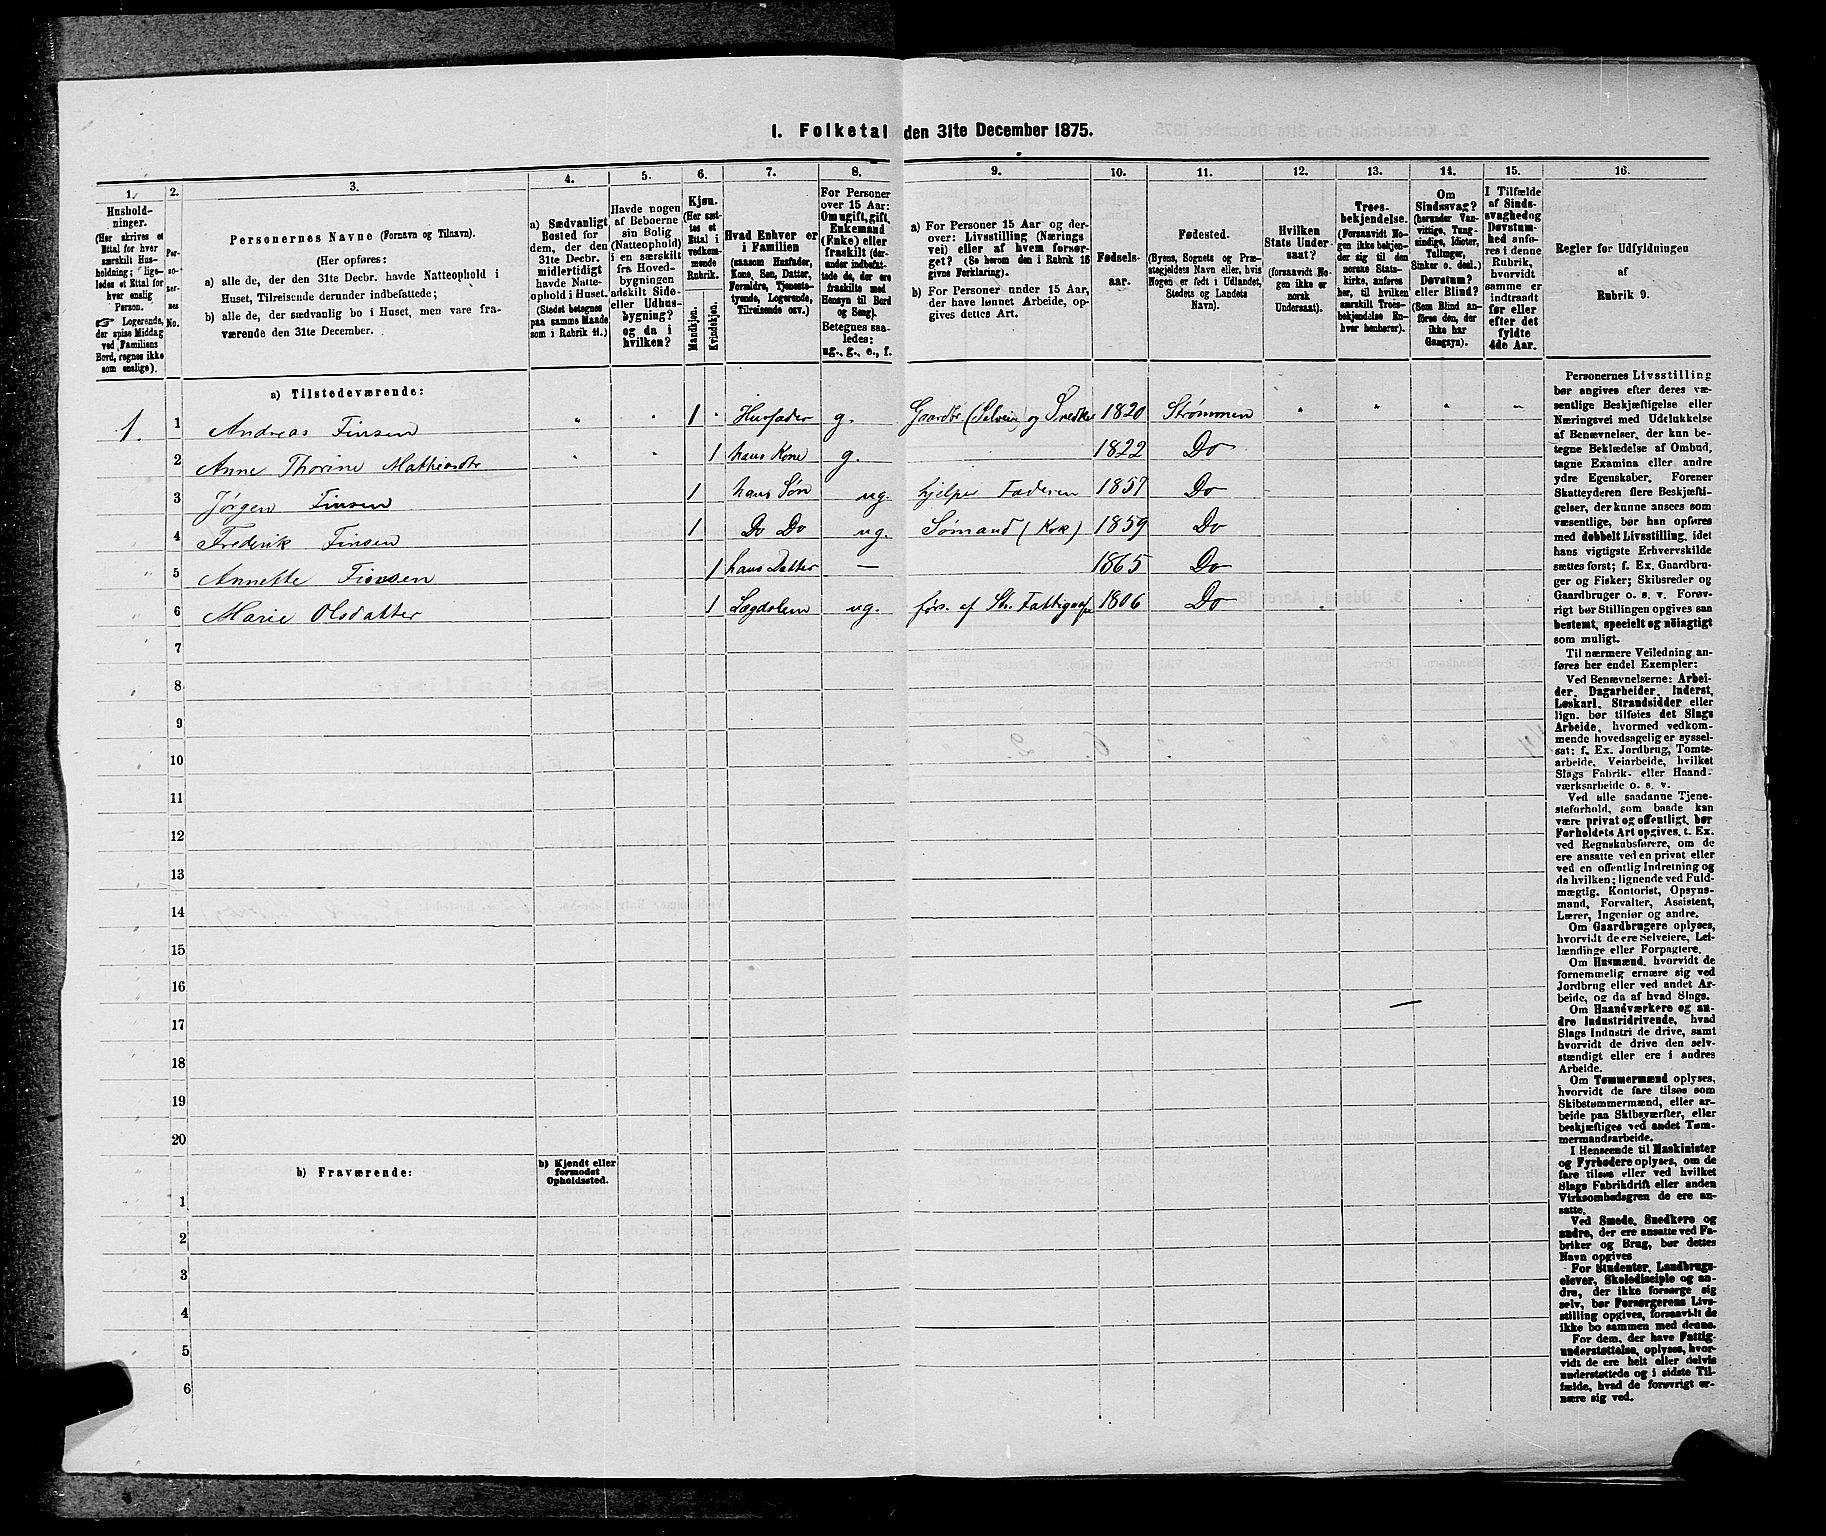 1. Folketal den 31te December 1875.
1.
2.
3.
4.
5.
6.
7.
8.
9.
10.
11.
12.
13.
14.
15.
16.
Husholdninger.
(Her skrives et Ettal for hver særskilt Husholdning; ligeledes et Ettal for hver enslig Person.
☞ Logerende, der spise Middag ved Familiens Bord, regnes ikke som enslige).
Personernes No.
Personernes Navne (Fornavn og Tilnavn).
(Her opføres:
a) alle de, der den 31te Decbr. havde Natteophold i
Huset, Tilreisende derunder indbefattede;
b) alle de, der sædvanlig bo i Huset, men vare fra-
værende den 31te December.
a) Sædvanligt
Bosted for
dem, der den
31te Decbr.
midlertidigt
havde Natte-
ophold i Huset.
(Stedet betegnes
paa samme Maade
som i Rubrik 11.)
Havde nogen
af Beboerne
sin Bolig
(Natteophold)
i en særskilt
fra Hoved-
bygningen
adskilt Side-
eller Udhus-
bygning?
og da i
hvilken?
Kjøn.
(Her sættes et
Ettal i
vedkommende
Rubrik.
Mandkjøn.
Kvindekjøn.
Hvad Enhver er
i Familien
(saasom Husfader,
Kone, Søn, Datter,
Forældre, Tjeneste-
tyende, Logerende,
Tilreisende osv.)
For Personer
over 15 Aar:
Om ugift, gift,
Enkemand
(Enke) eller
fraskilt (der-
under indbefat-
tede de, der ere
fraskilte med
Hensyn til Bord
og Seng).
Betegnes saa-
ledes:
ug., g., e., f.
a) For Personer 15 Aar og der-
over: Livsstilling (Nærings-
vei) eller af hvem forsør-
get? (Se herom den i Rubrik 16
givne Forklaring).
b) For Personer under 15 Aar,
der have lønnet Arbeide, op-
gives dettes Art.
Fødsels-
aar.
Fødested.
(Byens, Sognets og Præ-
stegjeldets Navn eller, hvis
Nogen er født i Udlandet,
Stedets og Landets
Navn).
Hvilken
Stats Under-
saat?
(forsaavidt No-
gen ikke er
norsk
Undersaat).
Troes-
bekjendelse.
(Forsaavidt No-
gen ikke bekjen-
der sig til den
norske Stats-
kirke, anføres
her, til hvilken
særskilt Troes-
bekjendelse En-
hver henhører).
Om
Sindssvag?
(herunder Van-
vittige, Tung-
sindige, Idioter,
Tullinger,
Sinker o. desl.)
Døvstum?
eller Blind?
(Som Blind an-
føres den, der
ikke har
Gangsyn).
I Tilfælde
af Sinds-
svaghed og
Døvstum-
hed anfø-
res i denne
Rubrik,
hvorvidt
samme er
indtraadt
før eller
efter det
fyldte
4de Aar.
Regler for Udfyldningen
af
Rubrik 9.
a) Tilstedeværende:
1. 1 Andreas Finsen " " 1 " Husfader g. Gaardbr (Selveier) og Snedker 1820 Strømmen " " " "
2 Anne Thorine Mathiasdtr " " 1 hans Kone g. 1822 Do
3 Jørgen Finsen 1 hans Søn ug. hjelper Faderen 1857 Do
4 Frederik Finsen 1 Do Do ug. Sømand (Kok) 1859 Do
5 Annette Finsen 1 hans Datter — 1865 Do
6 Marie Olsdatter 1 Lægdslem ug. fors. af Str. Fattigv. 1806 Do
7
8
9
10
11
12
13
14
15
16
17
18
19
20
b) Fraværende:
b) Kjendt eller
formodet
Opholdssted.
1
2
3
4
5
6
Personernes Livsstilling
bør angives efter deres væ-
sentlige Beskjæftigelse eller
Næringsvei med Udelukkelse
af Benævnelser, der kun be-
tegne Beklædelse af Ombud,
tagne Examina eller andre
ydre Egenskaber. Forener
Skatteyderen flere Beskjæfti-
gelser, der kunne ansees som
væsentlige, bør han opføres
med dobbelt Livsstilling, idet
hans vigtigste Erhvervskilde
sættes først; f. Ex. Gaardbru-
ger og Fisker; Skibsreder og
Gaardbruger o. s. v. Forøv-
rigt bør Stillingen opgives saa
bestemt, specielt og nöiagtigt
som muligt.
Til nærmere Veiledning an-
føres her endel Exempler:
Ved Benævnelserne: Arbei-
der, Dagarbeider, Inderst,
Løskarl, Strandsidder eller
lign. bør tilføies det Slags
Arbeide, hvormed vedkom-
mende hovedsagelig er syssel-
sat; f. Ex. Jordbrug, Tomte-
arbeide, Veiarbeide, hvilket
Slags Fabrik- eller Haand-
værksarbeide o. s. v.
Ved alle saadanne Tjene-
steforhold, som baade kan
være privat og offentligt, bør
Forholdets Art opgives, t. Ex.
ved Regnskabsførere, om de
ere ansatte ved en privat eller
ved en offentlig Indretning og
da hvilken; lignende ved Fuld-
mægtig, Kontorist, Opsyns-
mand, Forvalter, Assistent,
Lærer, Ingeniør og andre.
Om Gaardbrugere oplyses,
hvorvidt de ere Selveiere, Lei-
lændinge eller Forpagtere.
Om Husmænd, hvorvidt de
fornemmelig ernære sig ved
Jordbrug eller ved andet Ar-
beide, og da af hvad Slags.
Om Haandværkere og an-
dre Industridrivende, hvad
Slags Industri de drive, samt
hvorvidt de drive den selv-
stændigt eller ere i andres
Arbeide.
Om Tømmermænd oplyses,
hvorvidt de fare tilsøs som
Skibstømmermænd, eller ar-
beide paa Skibsværfter, eller
beskjæftiges ved andet Tøm-
mermandsarbeide.
I Henseende til Maskinister
og Fyrbødere oplyses, om de
fare tilsøs eller ved hvilket
Slags Fabrikdrift eller anden
Virksomhedsgren de ere an-
satte.
Ved Smede, Snedkere og
andre, der ere ansatte ved Fa-
briker og Brug, bør dettes
Navn opgives
For Studenter, Landbrugs-
elever, Skoledisciple og an-
dre, der ikke forsørge sig
selv, bør Forsørgerens Livs-
stilling opgives, forsaavidt de
ikke bo sammen med denne.
For dem, der have Fattig-
understøttelse, oplyses, hvor-
vidt de ere helt eller delvis
understøttede og i sidste Til-
fælde, hvad de forøvrigt er-
nære sig ved.